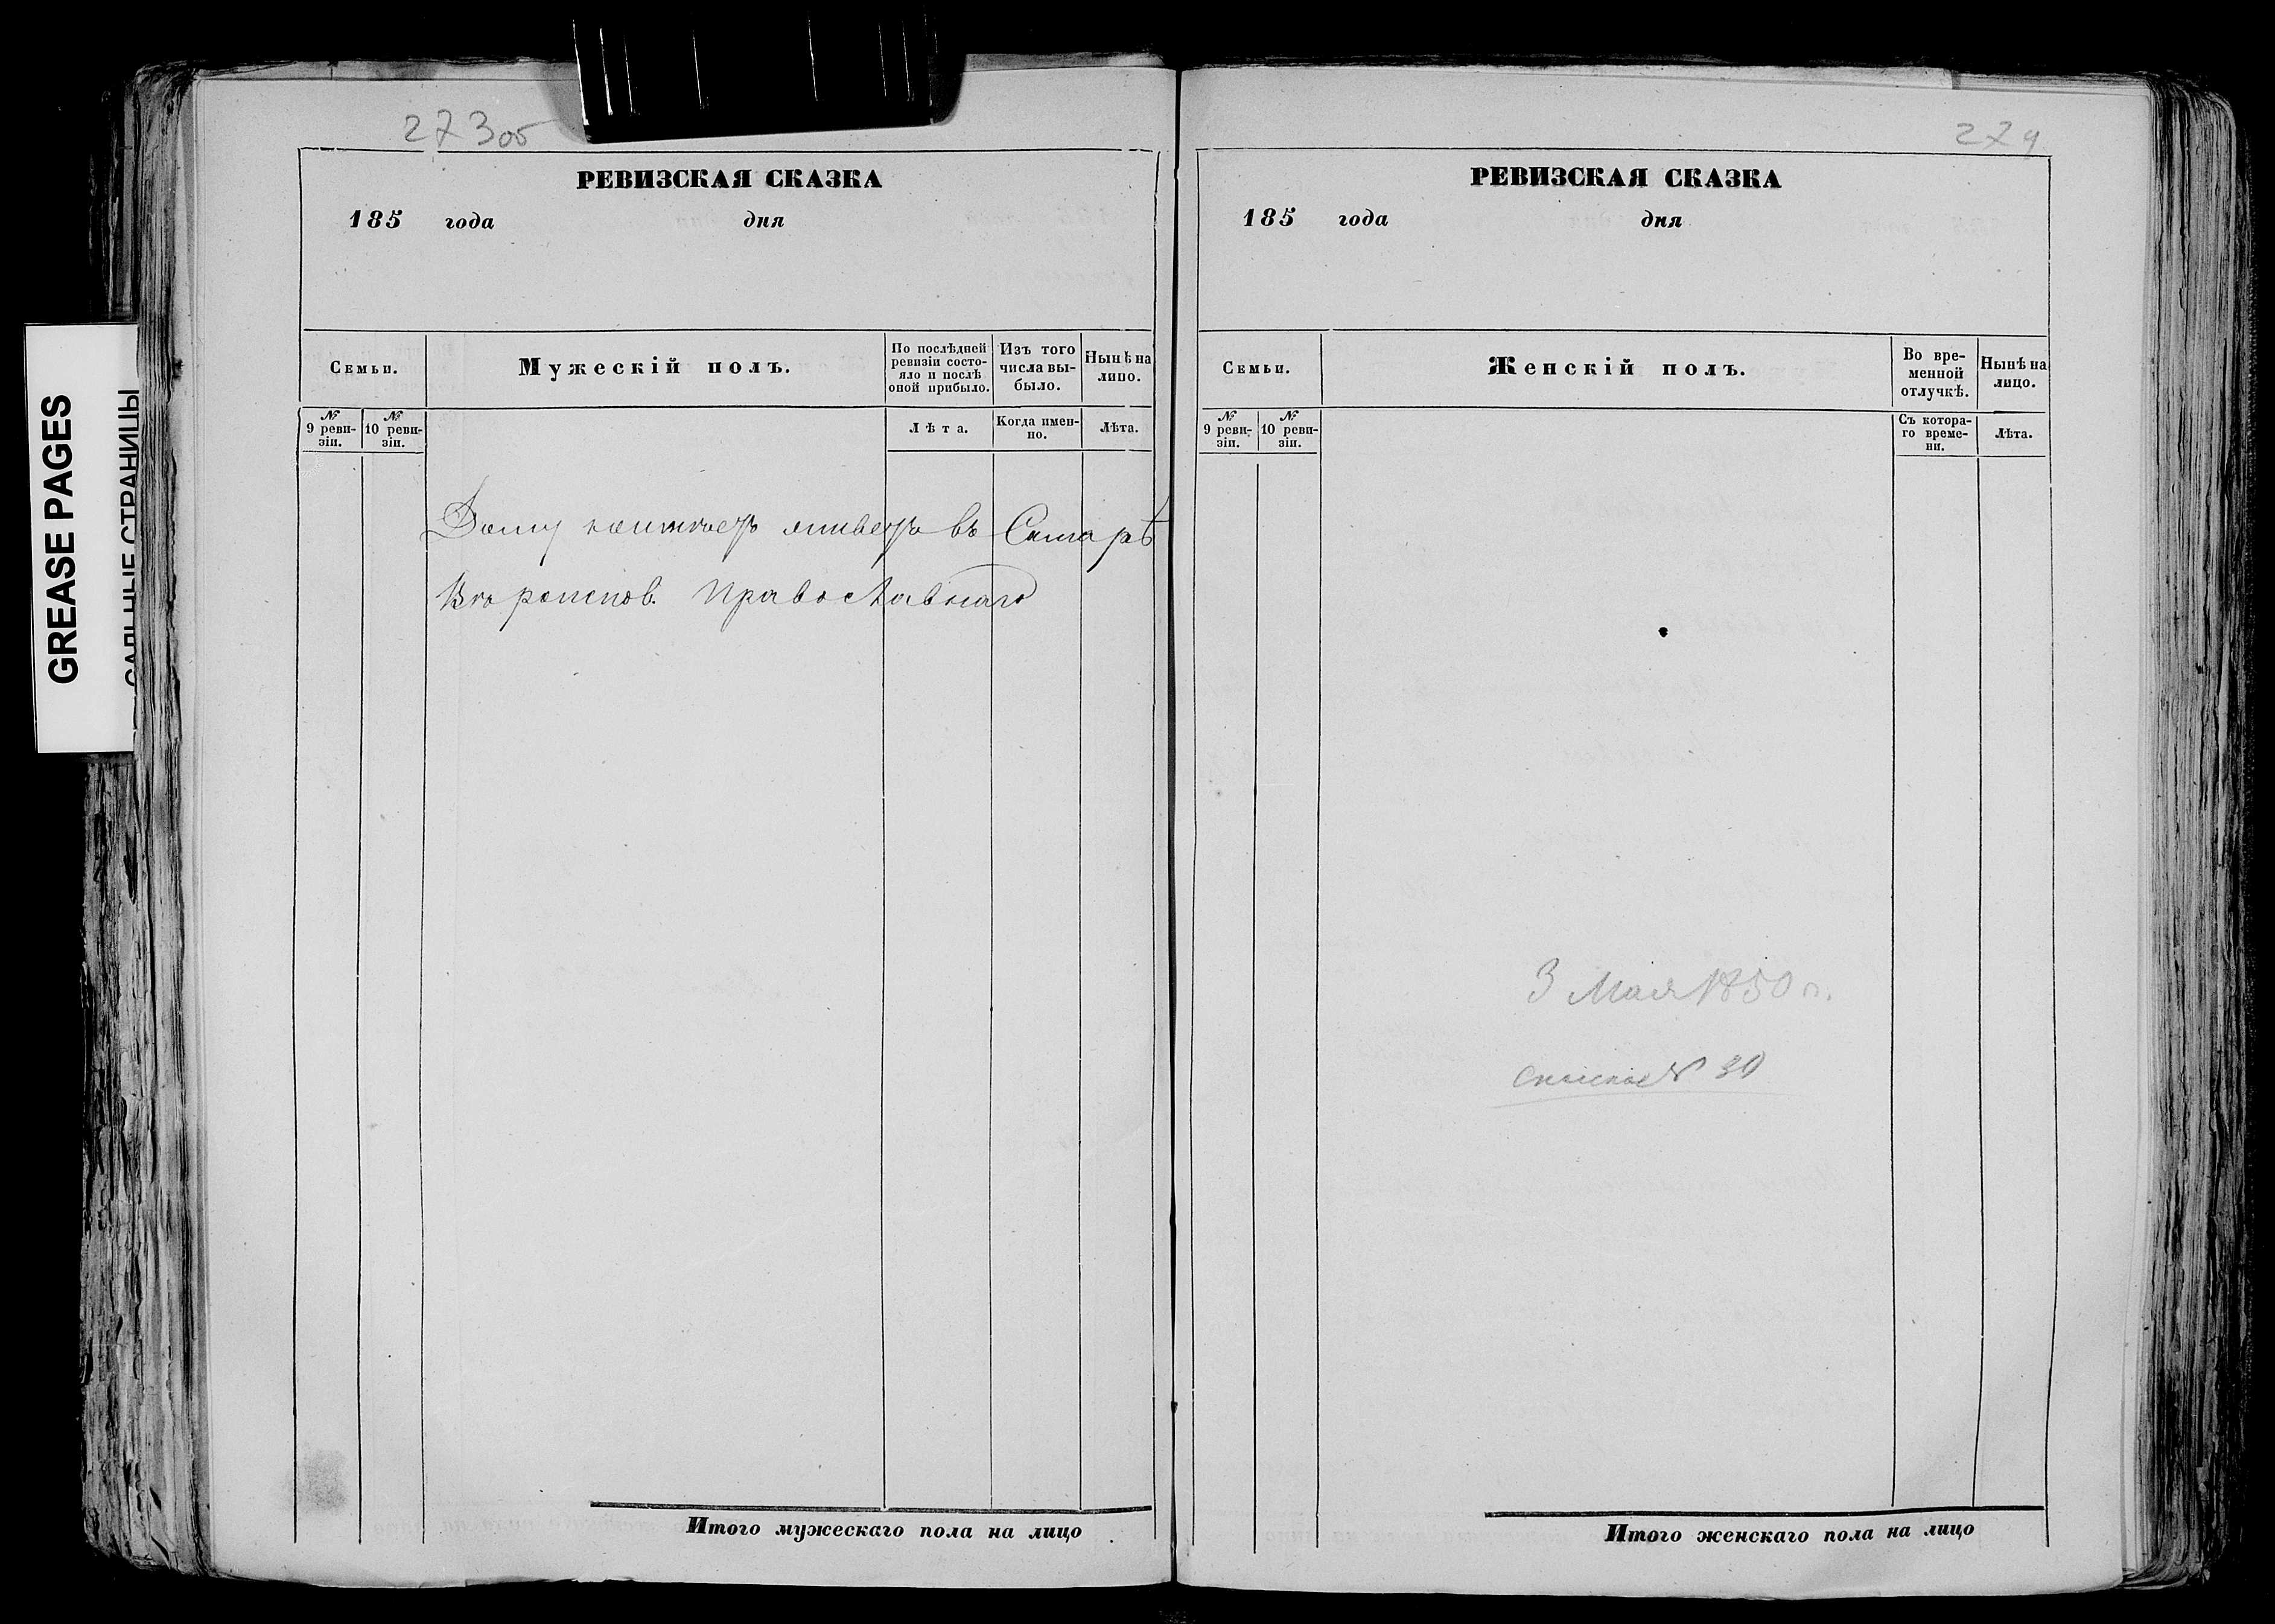 273об
РЕВИЗСКАЯ СКАЗКА
185 года дня
Семьи.
Мужескій полъ.
По послѣдней ревизіи состояло и послѣ оной прибыло.
Изъ того числа выбыло.
Нынѣ на лицо.
№ 9 ревизіи.
№ 10 ревизіи.
Лѣта.
Когда именно.
Лѣта.
Дому живетъ въ Самарѣ
Православнаго
Итого мужескаго пола на лицо
274
РЕВИЗСКАЯ СКАЗКА
185 года дня
Семьи.
Женскій полъ.
Во временной отлучкѣ.
Нынѣ на лицо.
№ 9 ревизіи.
№ 10 ревизіи.
Съ котораго времени.
Лѣта.
3 Мая 1850 г.
№ 30
Итого женскаго пола на лицо
GREASE PAGES
САЛЬНЫЕ СТРАНИЦЫ